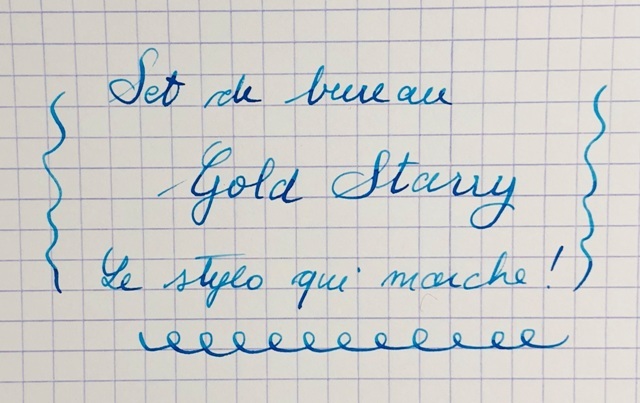 Set de bureau
Gold Starry
Le stylo qui marche !